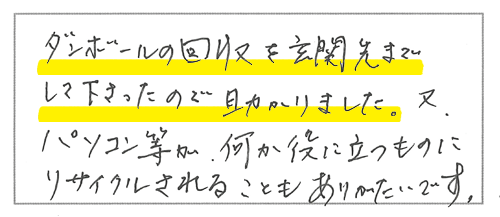 ダンボールの回収を玄関先まで
して下さったので助かりました。又、
パソコン等が、何か役に立つものに
リサイクルされることもありがたいです。